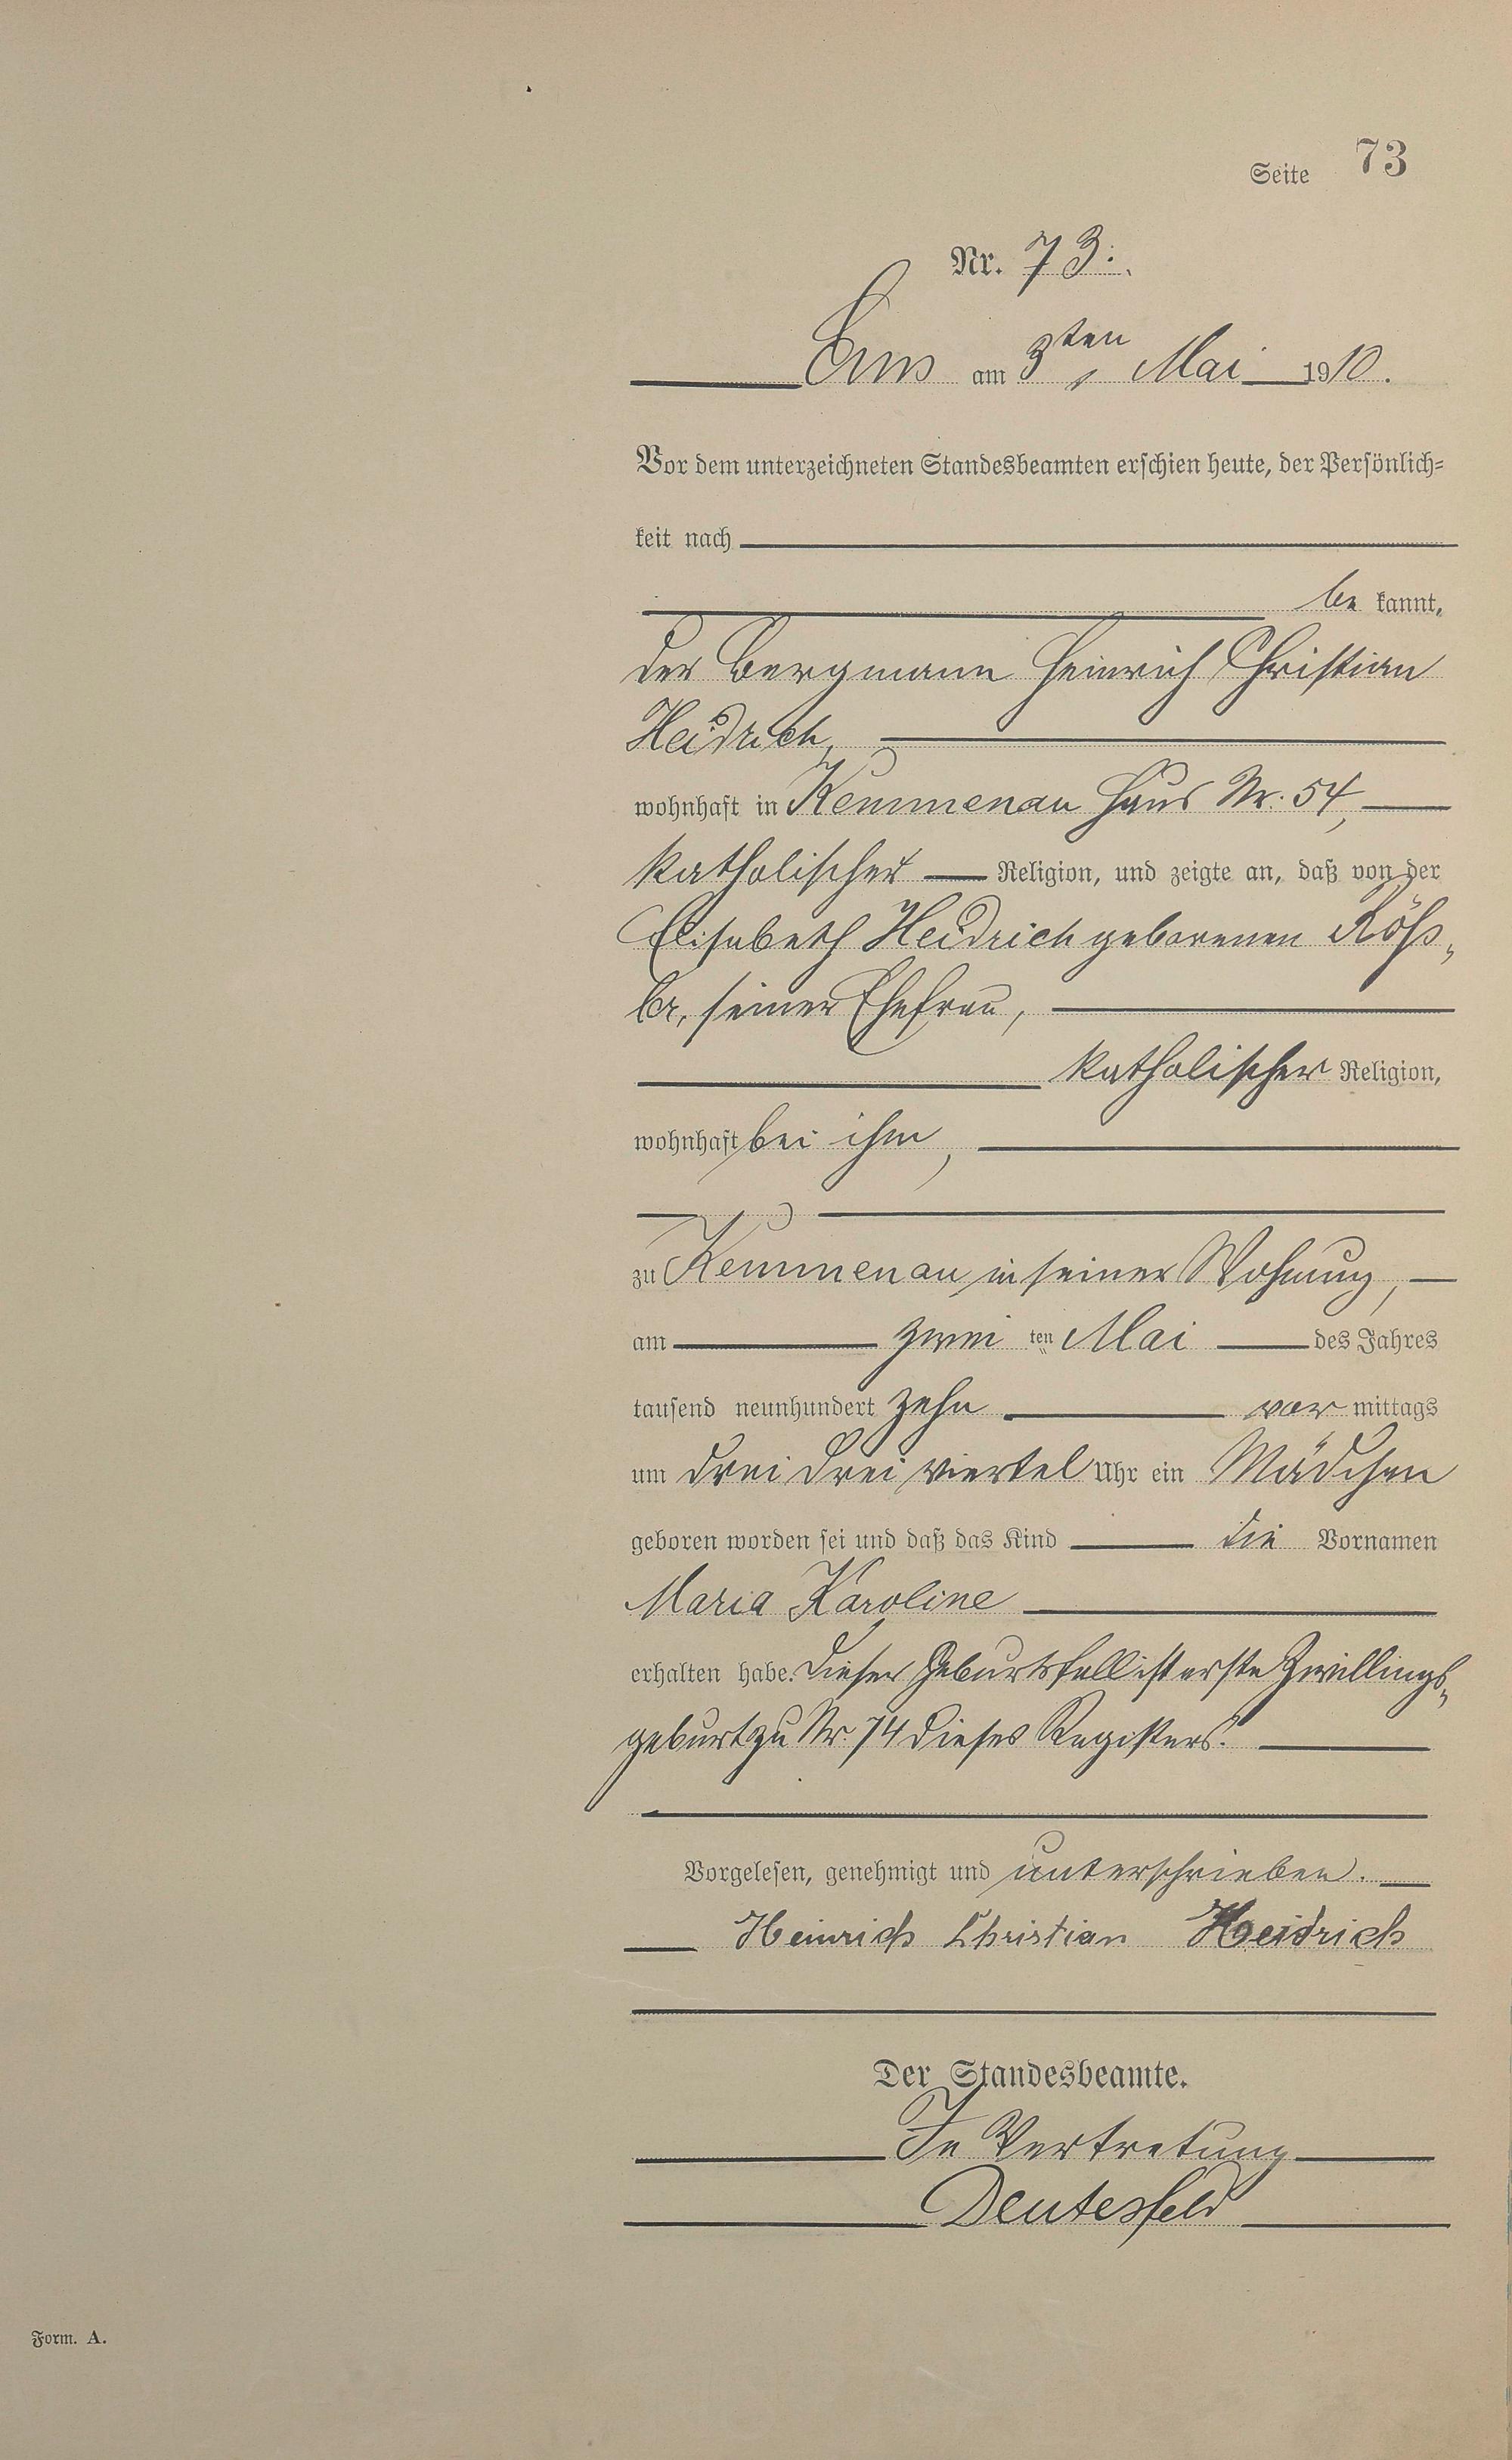 Seite 73
Nr. 73.
Ems am 3ten Mai 1910.
Vor dem unterzeichneten Standesbeamten erschien heute, der Persönlich=
keit nach
be kannt,
der Bergmann Heinrich Christian
Heidrich,
wohnhaft in Kemmenau Haus Nr. 54,
katholischer Religion, und zeigte an, daß von der
Elisabeth Heidrich geborenen Röß„
ler, seiner Ehefrau,
katholischer Religion,
wohnhaft bei ihm,
zu Kemmenau in seiner Wohnung,
am zwei ten Mai des Jahres
tausend neunhundert zehn vor mittags
um drei drei viertel Uhr ein Mädchen
geboren worden sei und daß das Kind die Vornamen
Maria Karoline
erhalten habe. Dieser Geburtsfall ist erste Zwillings„
geburt zu Nr. 74 dieses Registers.
Vorgelesen, genehmigt und unterschrieben.
Heinrich Christian Heidrich
Der Standesbeamte.
In Vertretung
Deutesfeld
Form. A.